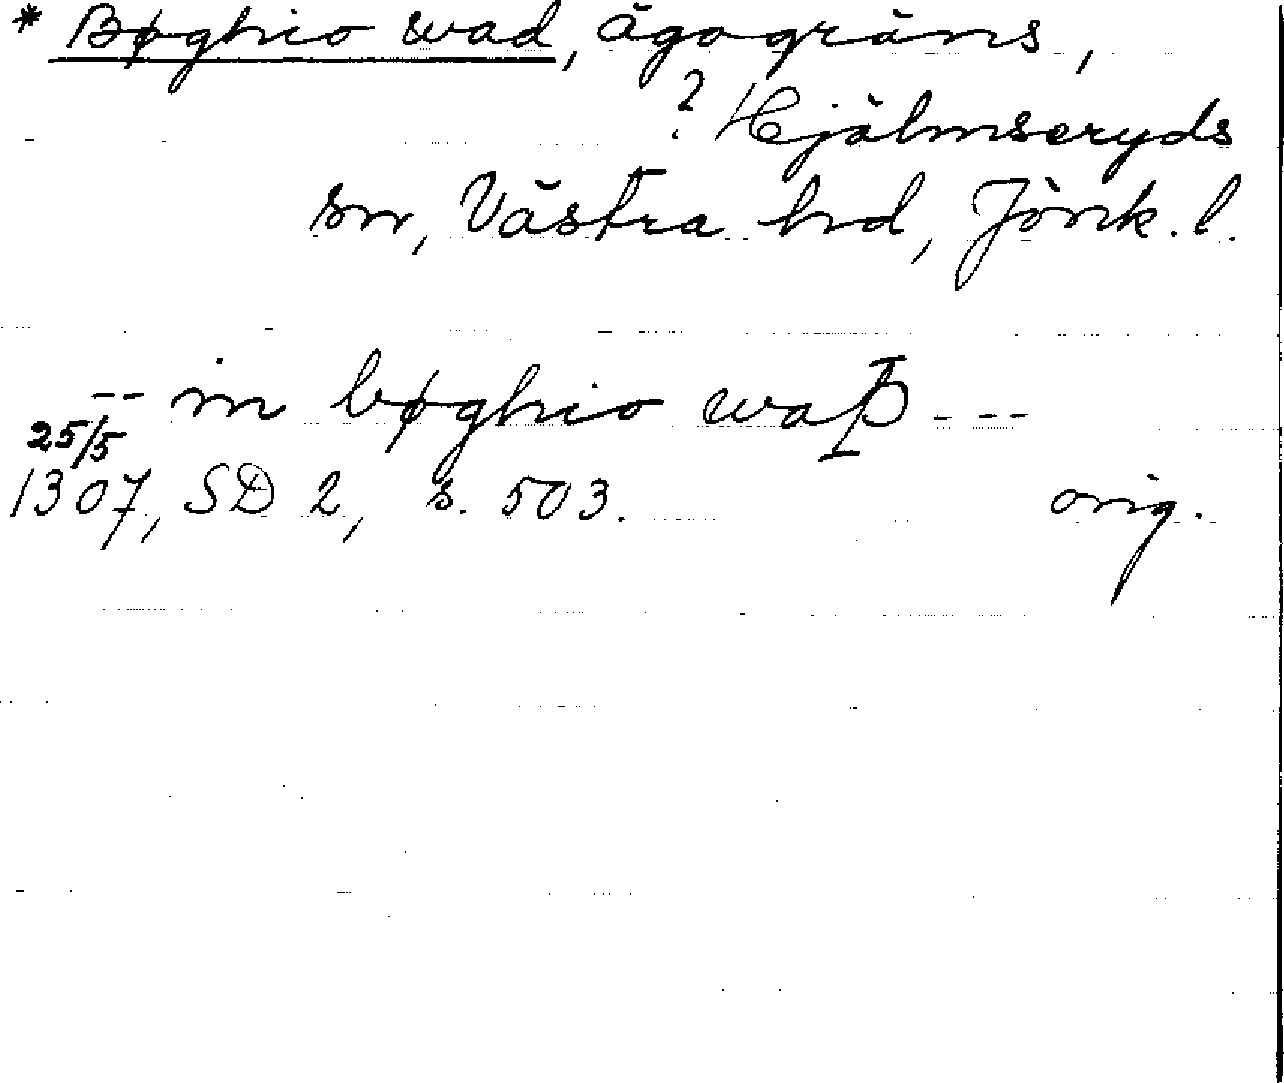 * Bøghio wad, ägogräns,
? Hjälmseryds
sn, Västra hd, Jönk. l.
-- in bøghio waþ ---
25/5
1307, SD 2, s. 503. orig.